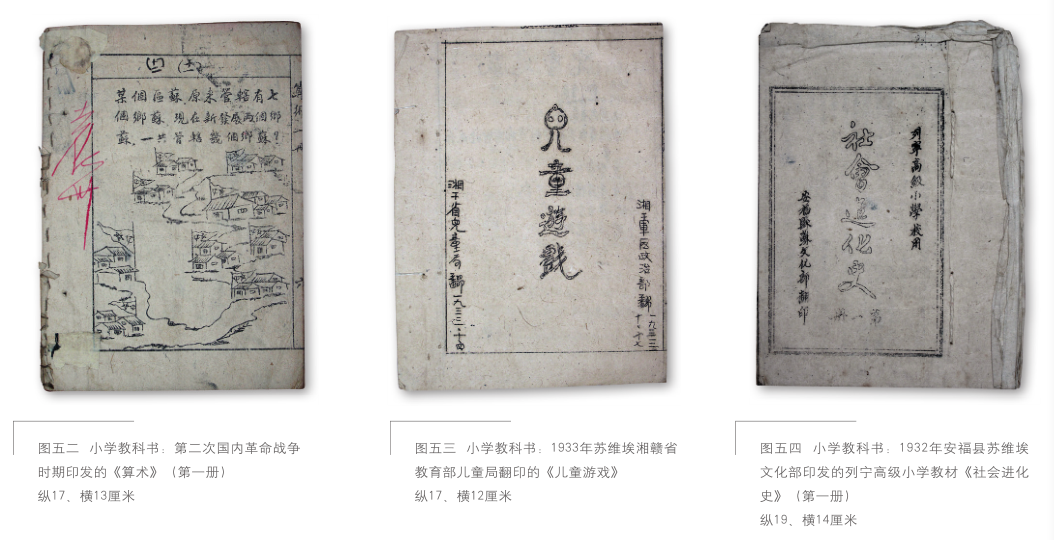 某個區蘇原來管轄有七
個鄉蘇現在新發展兩個鄉
蘇.一共管轄幾個鄉蘇?
兒童遊戲
湘干省兒童局翻一九三三
湘干軍區政治部翻一九三三
社會進化史
第一冊
列寧高級小學校用
安福縣蘇文化部翻印
图五二 小学教科书：第二次国内革命战争
时期印发的《算术》（第一册）
纵17、横13厘米
图五三 小学教科书：1933年苏维埃湘赣省
教育部儿童局翻印的《儿童游戏》
纵17、横12厘米
图五四 小学教科书：1932年安福县苏维埃
文化部印发的列宁高级小学教材《社会进化
史》（第一册）
纵19、横14厘米